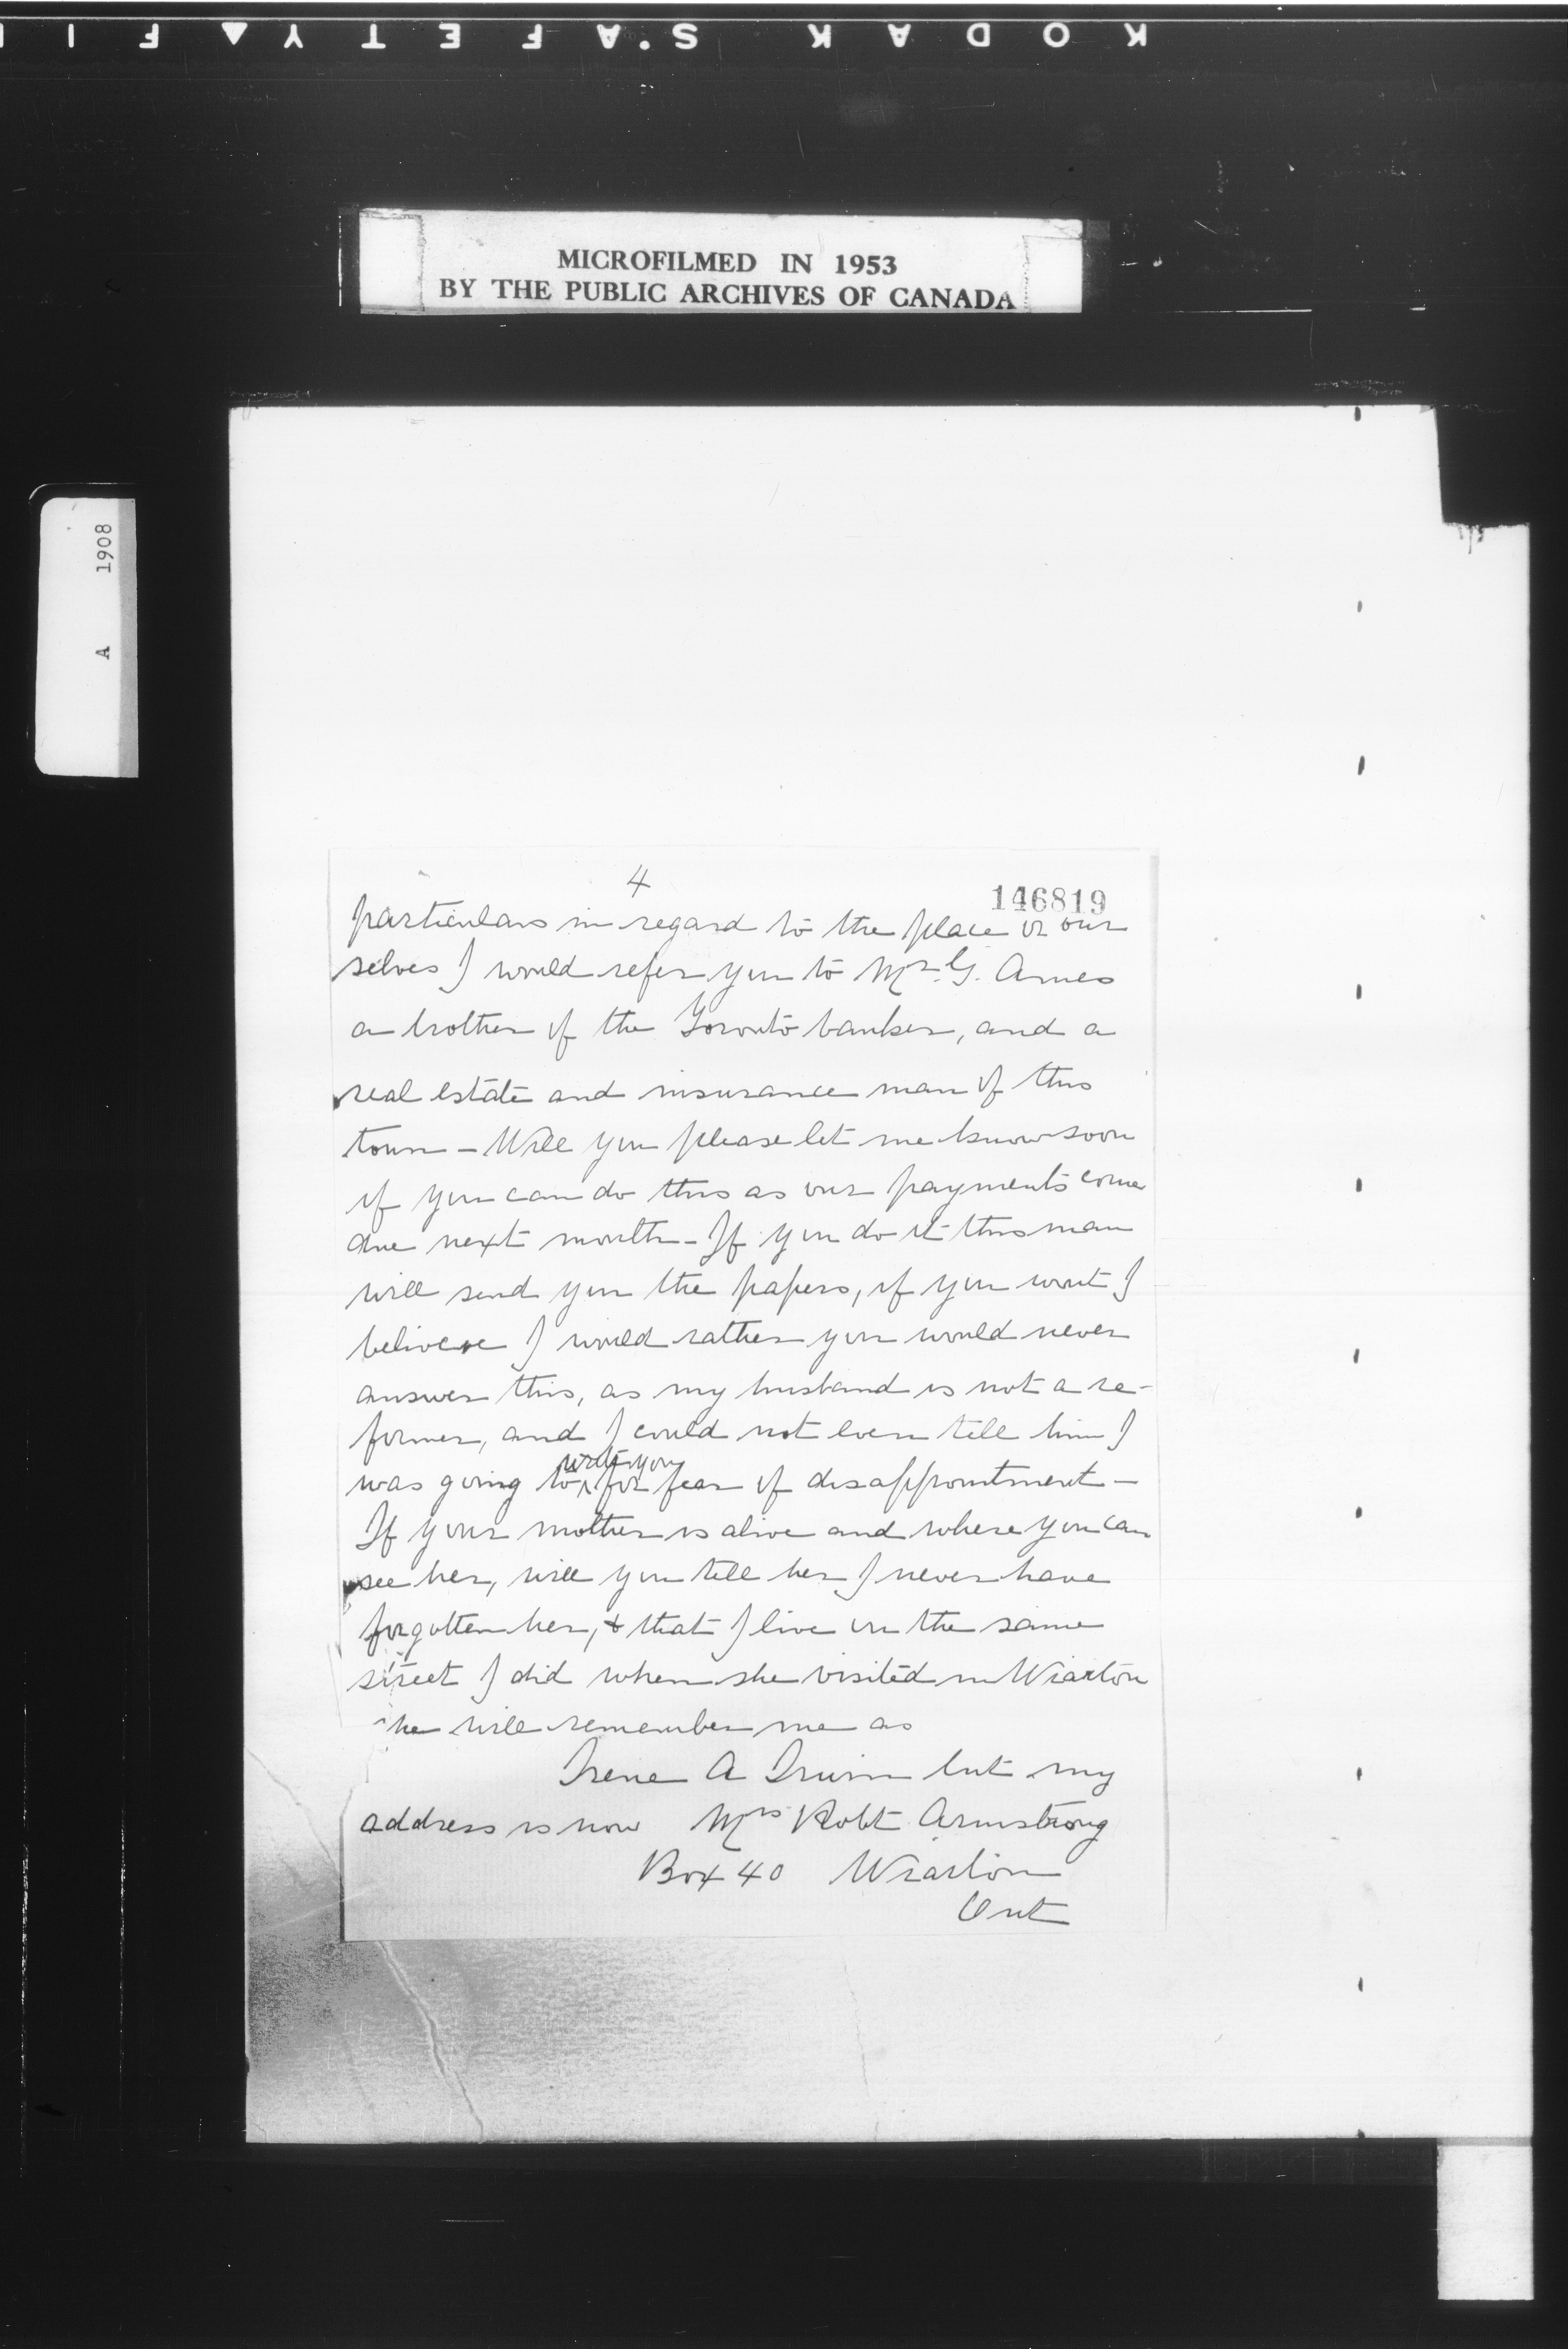 KODAK S'AFETY FIL
MICROFILMED IN 1953
BY THE PUBLIC ARCHIVES OF CANADA
A 1908
4
146819
particulars in regard to the place or our
selves I would refer you to Mr. G. Ames
a brother of the Toronto banker, and a
real estate and insurance man of this
town - Will you please let me know soon
if you can do this as our payments come
due next month - If you do it this man
will send you the papers, if you wont I
beliveve I would rather you would never
answer this, as my husband is not a re-
former, and I could not even tell him I
write you
was going to for fear of disappointment -
If your mother is alive and where you can
see her, will you tell her I never have
forgotten her, & that I live on the same
street I did when she visited in Wiarton
he will remember me as
Irene A Irwin but my
address is now Mrs Robt Armstrong
Box 40 Wiarton
Ont